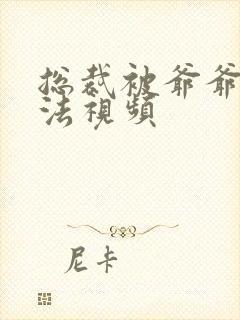 总裁被爷爷
法視頻
尼卡